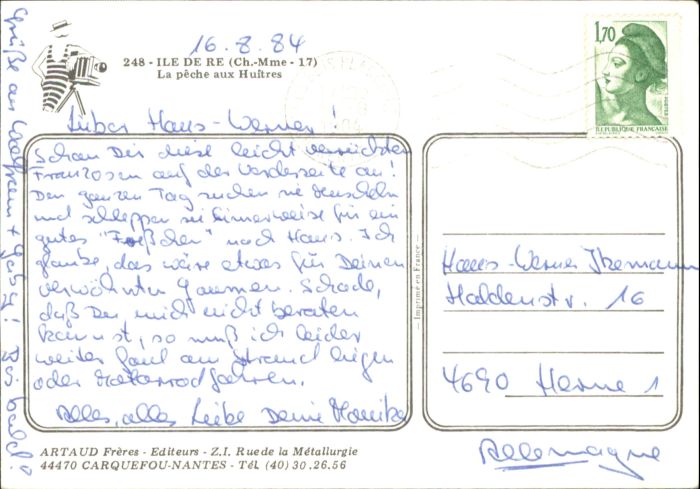 16.8.84
248 - ILE DE RE (Ch.-Mme - 17)
La pêche aux Huîtres
1,70
REPUBLIQUE FRANCAISE
Lieber Hans-Werner!
Schau Dir diese leicht verrückten
Franzosen auf der Vorderseite an!
Den ganzen Tag suchen sie Muscheln
und schleppen sie eimerweise für ein
gutes "Freßchen" nach Haus. Ich
glaube, das wäre etwas für Deinen
verwöhnten Gaumen. Schade,
daß Du mich nicht beraten
kannst, so muß ich leider
weiter faul am Strand liegen
oder Motorrad fahren.
Alles, alles Liebe Deine Monika
Grüße an Wolfram + Gaby! Bis bald!
Imprimé en France
Hans-Werner Ikemann
Haldenstr. 16
4690 Herne 1
Allemagne
ARTAUD Frères - Editeurs - Z.I. Rue de la Métallurgie
44470 CARQUEFOU-NANTES - Tél (40) 30.26.56